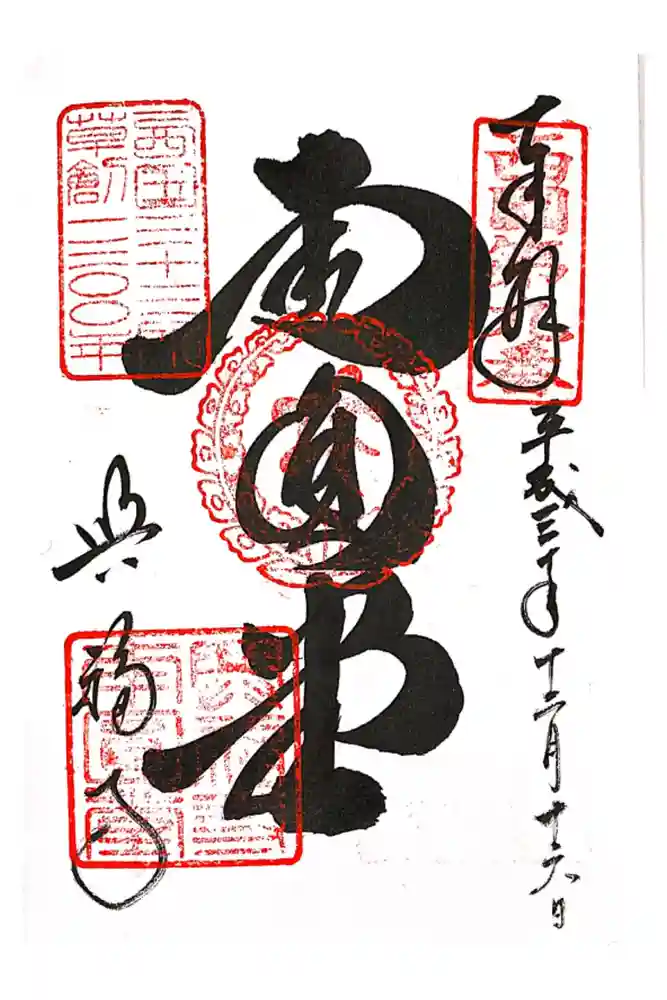 奉拝
平成三十年十二月十六日
南圓堂
西国三十三所
草創一三〇〇年
興福寺